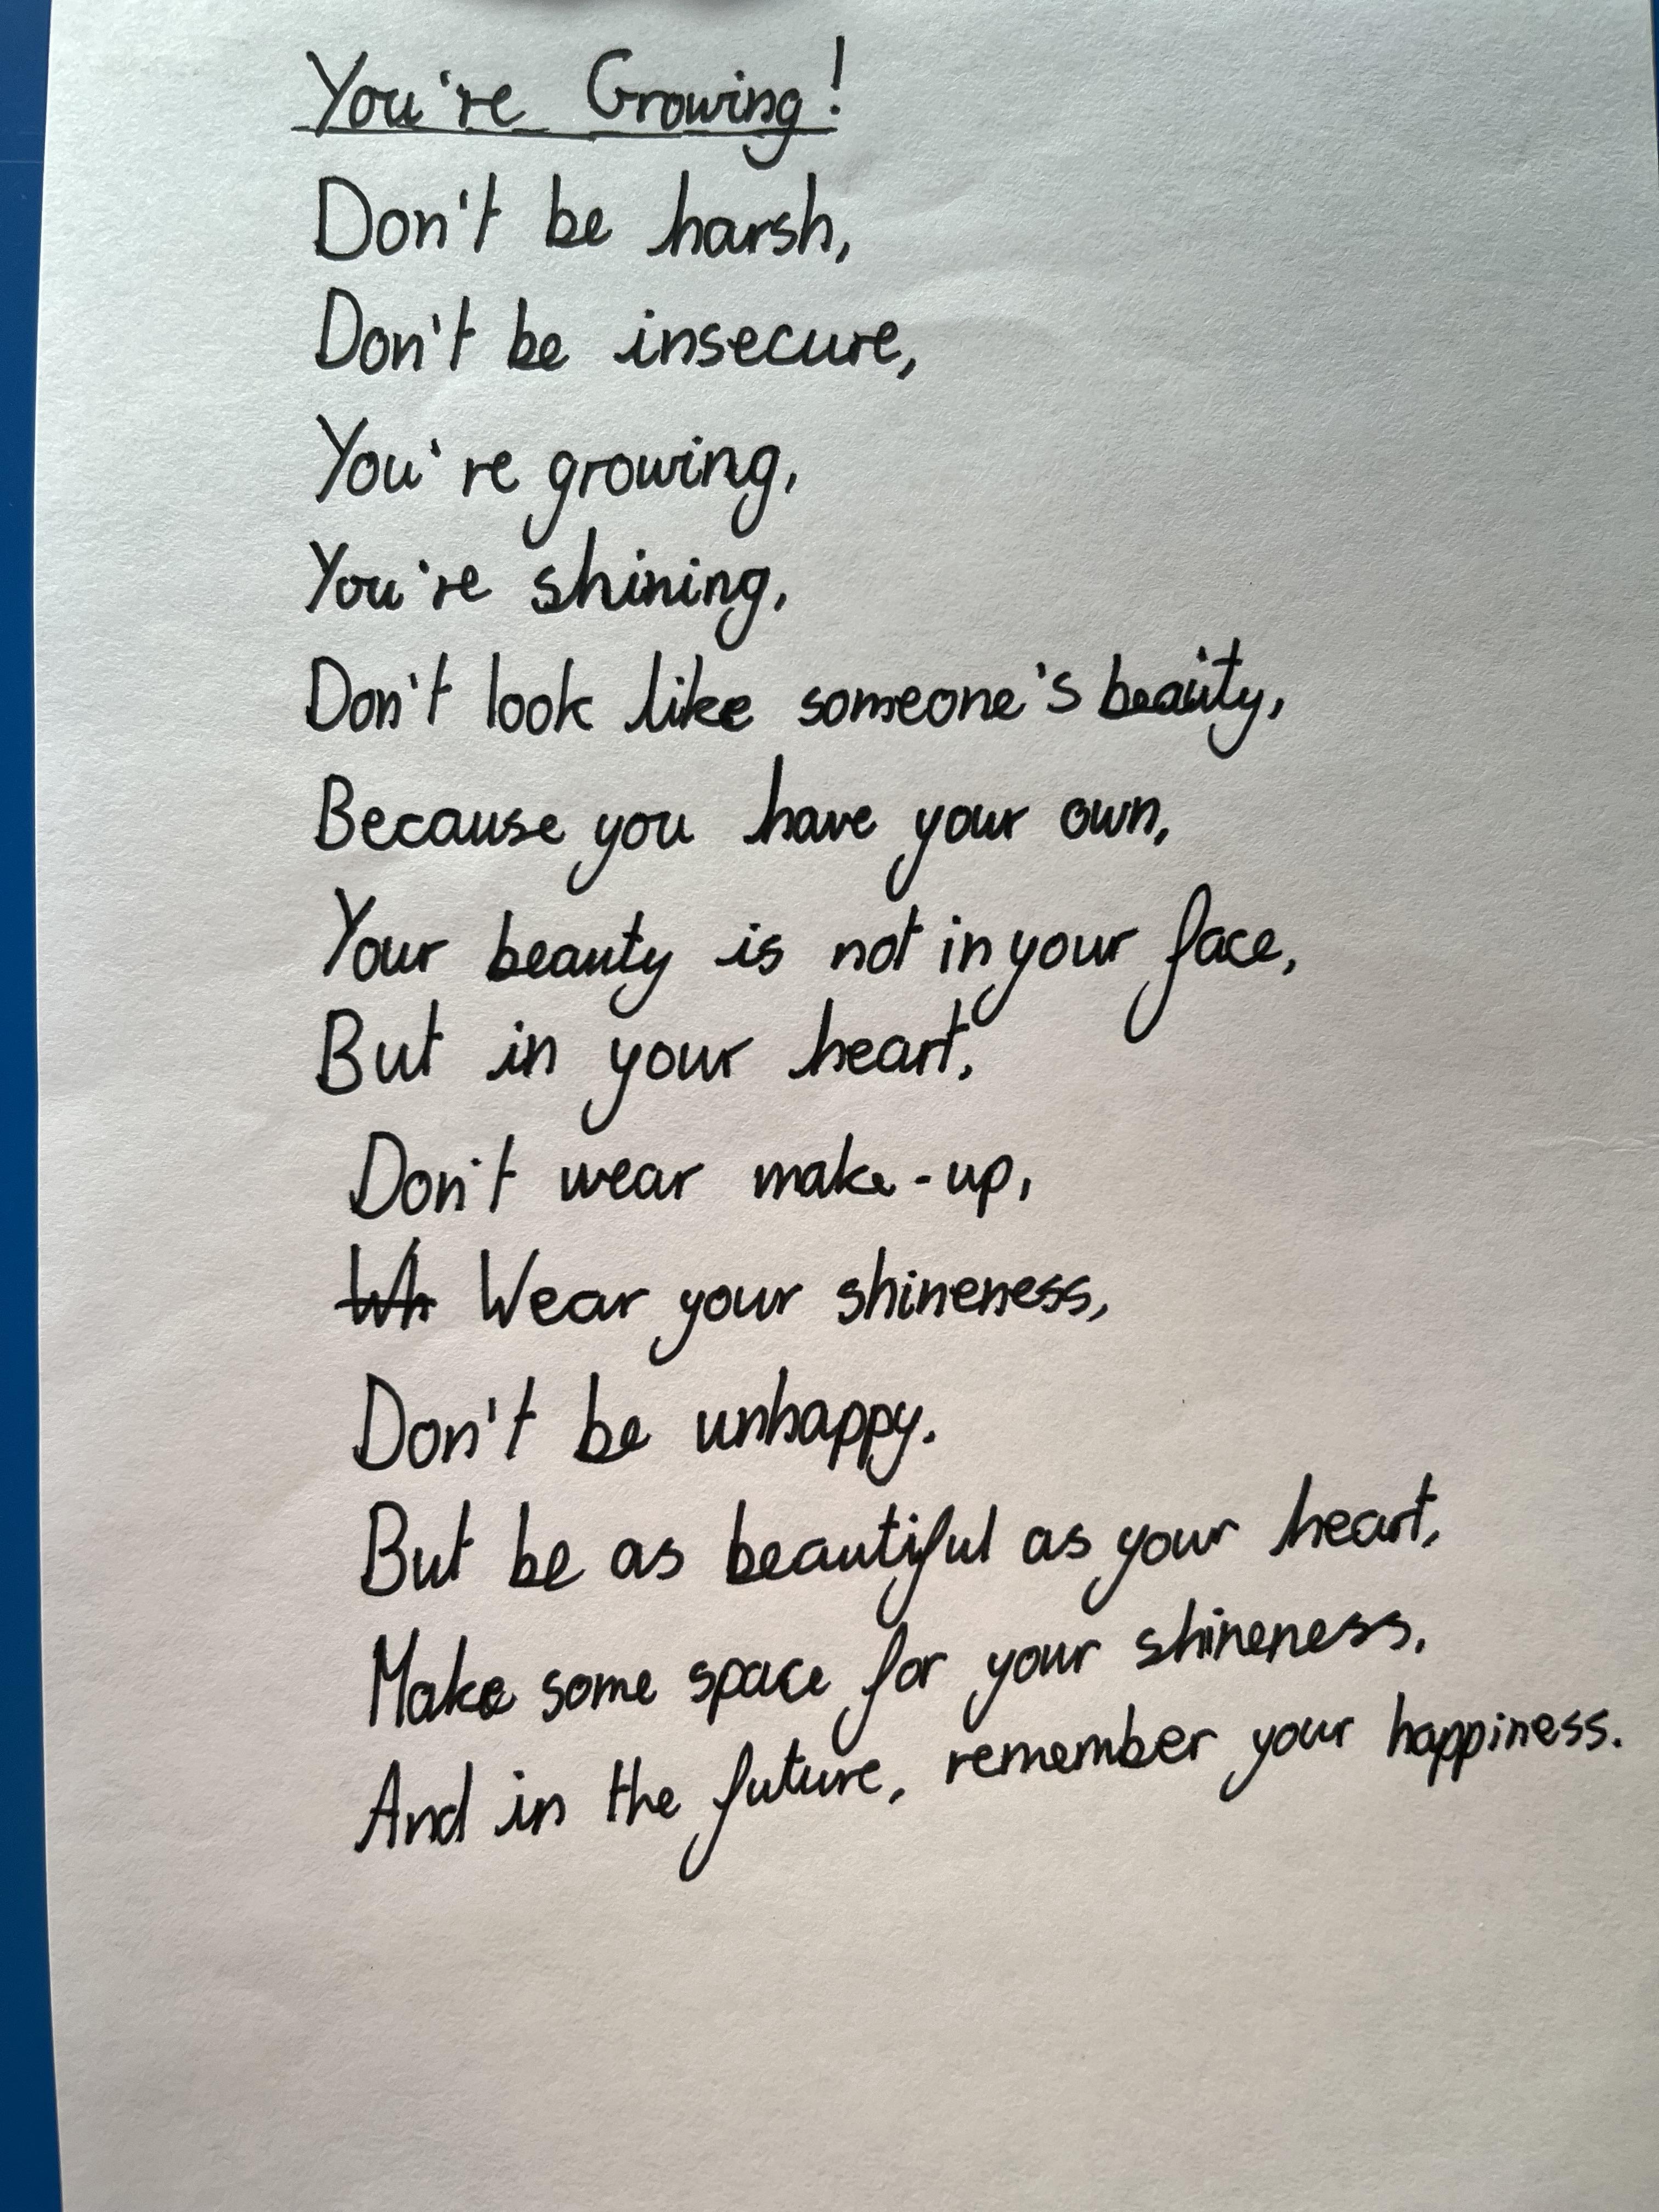 You're Growing!
Don't be harsh,
Don't be insecure,
You're growing,
You're shining,
Don't look like someone's beauty,
Because you have your own,
Your beauty is not in your face,
But in your heart,
Don't wear make-up,
Wh Wear your shineness,
Don't be unhappy.
But be as beautiful as your heart,
Make some space for your shineness,
And in the future, remember your happiness.